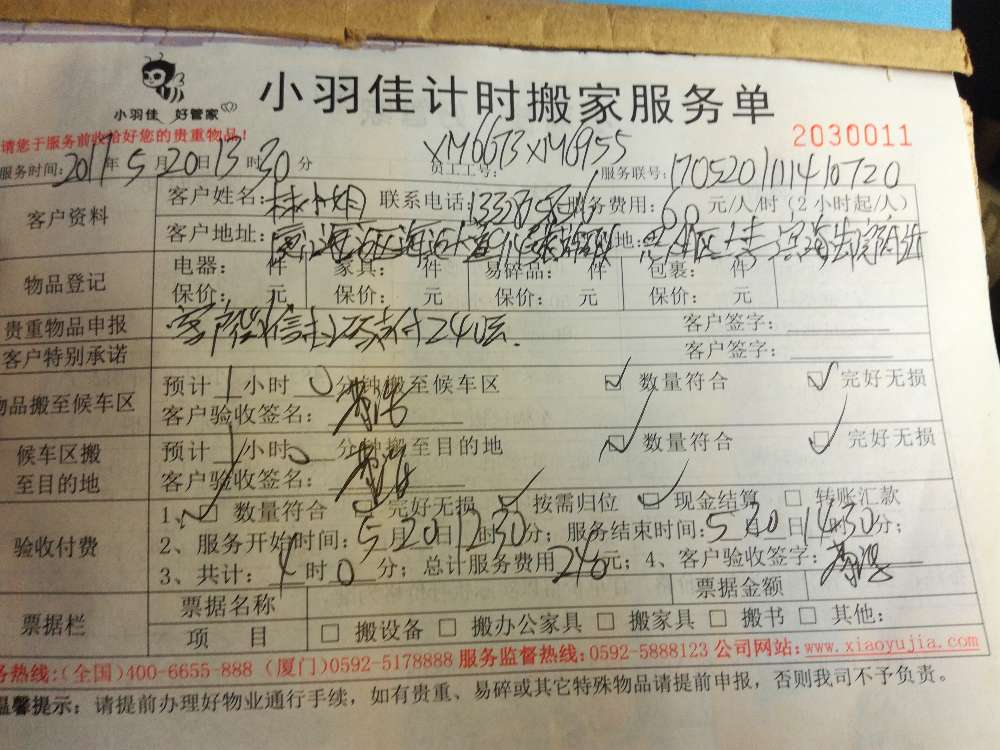 小羽佳 好管家
小羽佳计时搬家服务单
请您于服务前收拾好您的贵重物品!
2030011
服务时间:2017年5月20日13时30分 员工工号: XM6673 XM6955 服务联号:170520111410720
客户资料
客户姓名:林小姐 联系电话: 服务费用:60元/人/时(2小时起/人)
客户地址: 地:
物品登记
电器: 件 家具: 件 易碎品: 件 包裹: 件
保价: 元 保价: 元 保价: 元 保价: 元
贵重物品申报 客户签字:
客户微信支付240元.
客户特别承诺 客户签字:
物品搬至候车区
预计1小时0分钟搬至候车区 ☑ 数量符合 ☑ 完好无损
客户验收签名:
候车区搬至目的地
预计1小时0分钟搬至目的地 ☑ 数量符合 ☑ 完好无损
客户验收签名:
验收付费
1、☑ 数量符合 ☑ 完好无损 ☑ 按需归位 ☑ 现金结算 □ 转账汇款
2、服务开始时间:5月20日12时30分;服务结束时间:5月20日14时30分;
3、共计:4时0分;总计服务费用240元;4、客户验收签字:
票据栏
票据名称 票据金额
项 目 □ 搬设备 □ 搬办公家具 □ 搬家具 □ 搬书 □ 其他:
务热线:(全国)400-6655-888 (厦门)0592-5178888 服务监督热线:0592-5888123 公司网站:www.xiaoyujia.com
温馨提示:请提前办理好物业通行手续,如有贵重、易碎或其它特殊物品请提前申报,否则我司不予负责。